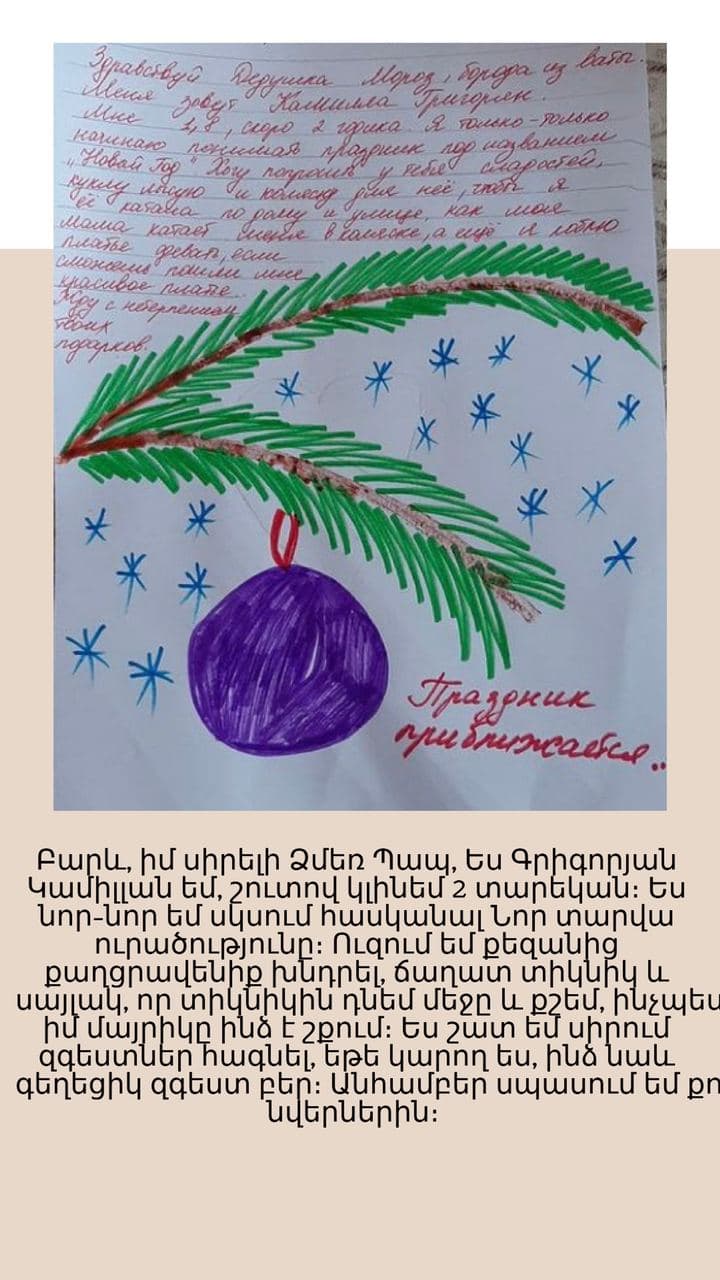 Здравствуй Дедушка Мороз, борода из ваты.
Меня зовут Камилла Григорян.
Мне 1,8, скоро 2 годика. Я только-только
начинаю понимать праздник под названием
"Новый Год". Хочу попросить у тебя сладостей,
куклу лысую и коляску для неё, чтобы я
её катала по дому и улице, как моя
мама катает меня в коляске, а ещё я люблю
платье девать, если
сможешь пошли мне
красивое платье.
Жду с нетерпением
твоих
подарков.
Праздник
приближается..
Բարև, իմ սիրելի Ձմեռ Պապ, Ես Գրիգորյան
Կամիլլան եմ, շուտով կլինեմ 2 տարեկան։ Ես
նոր-նոր եմ սկսում հասկանալ Նոր տարվա
ուրածությունը։ Ուզում եմ քեզանից
քաղցրավենիք խնդրել, ճաղատ տիկնիկ և
սայլակ, որ տիկնիկին դնեմ մեջը և քշեմ, ինչպես
իմ մայրիկը ինձ է շքում։ Ես շատ եմ սիրում
զգեստներ հագնել, եթե կարող ես, ինձ նաև
գեղեցիկ զգեստ բեր։ Անհամբեր սպասում եմ քո
նվերներին։